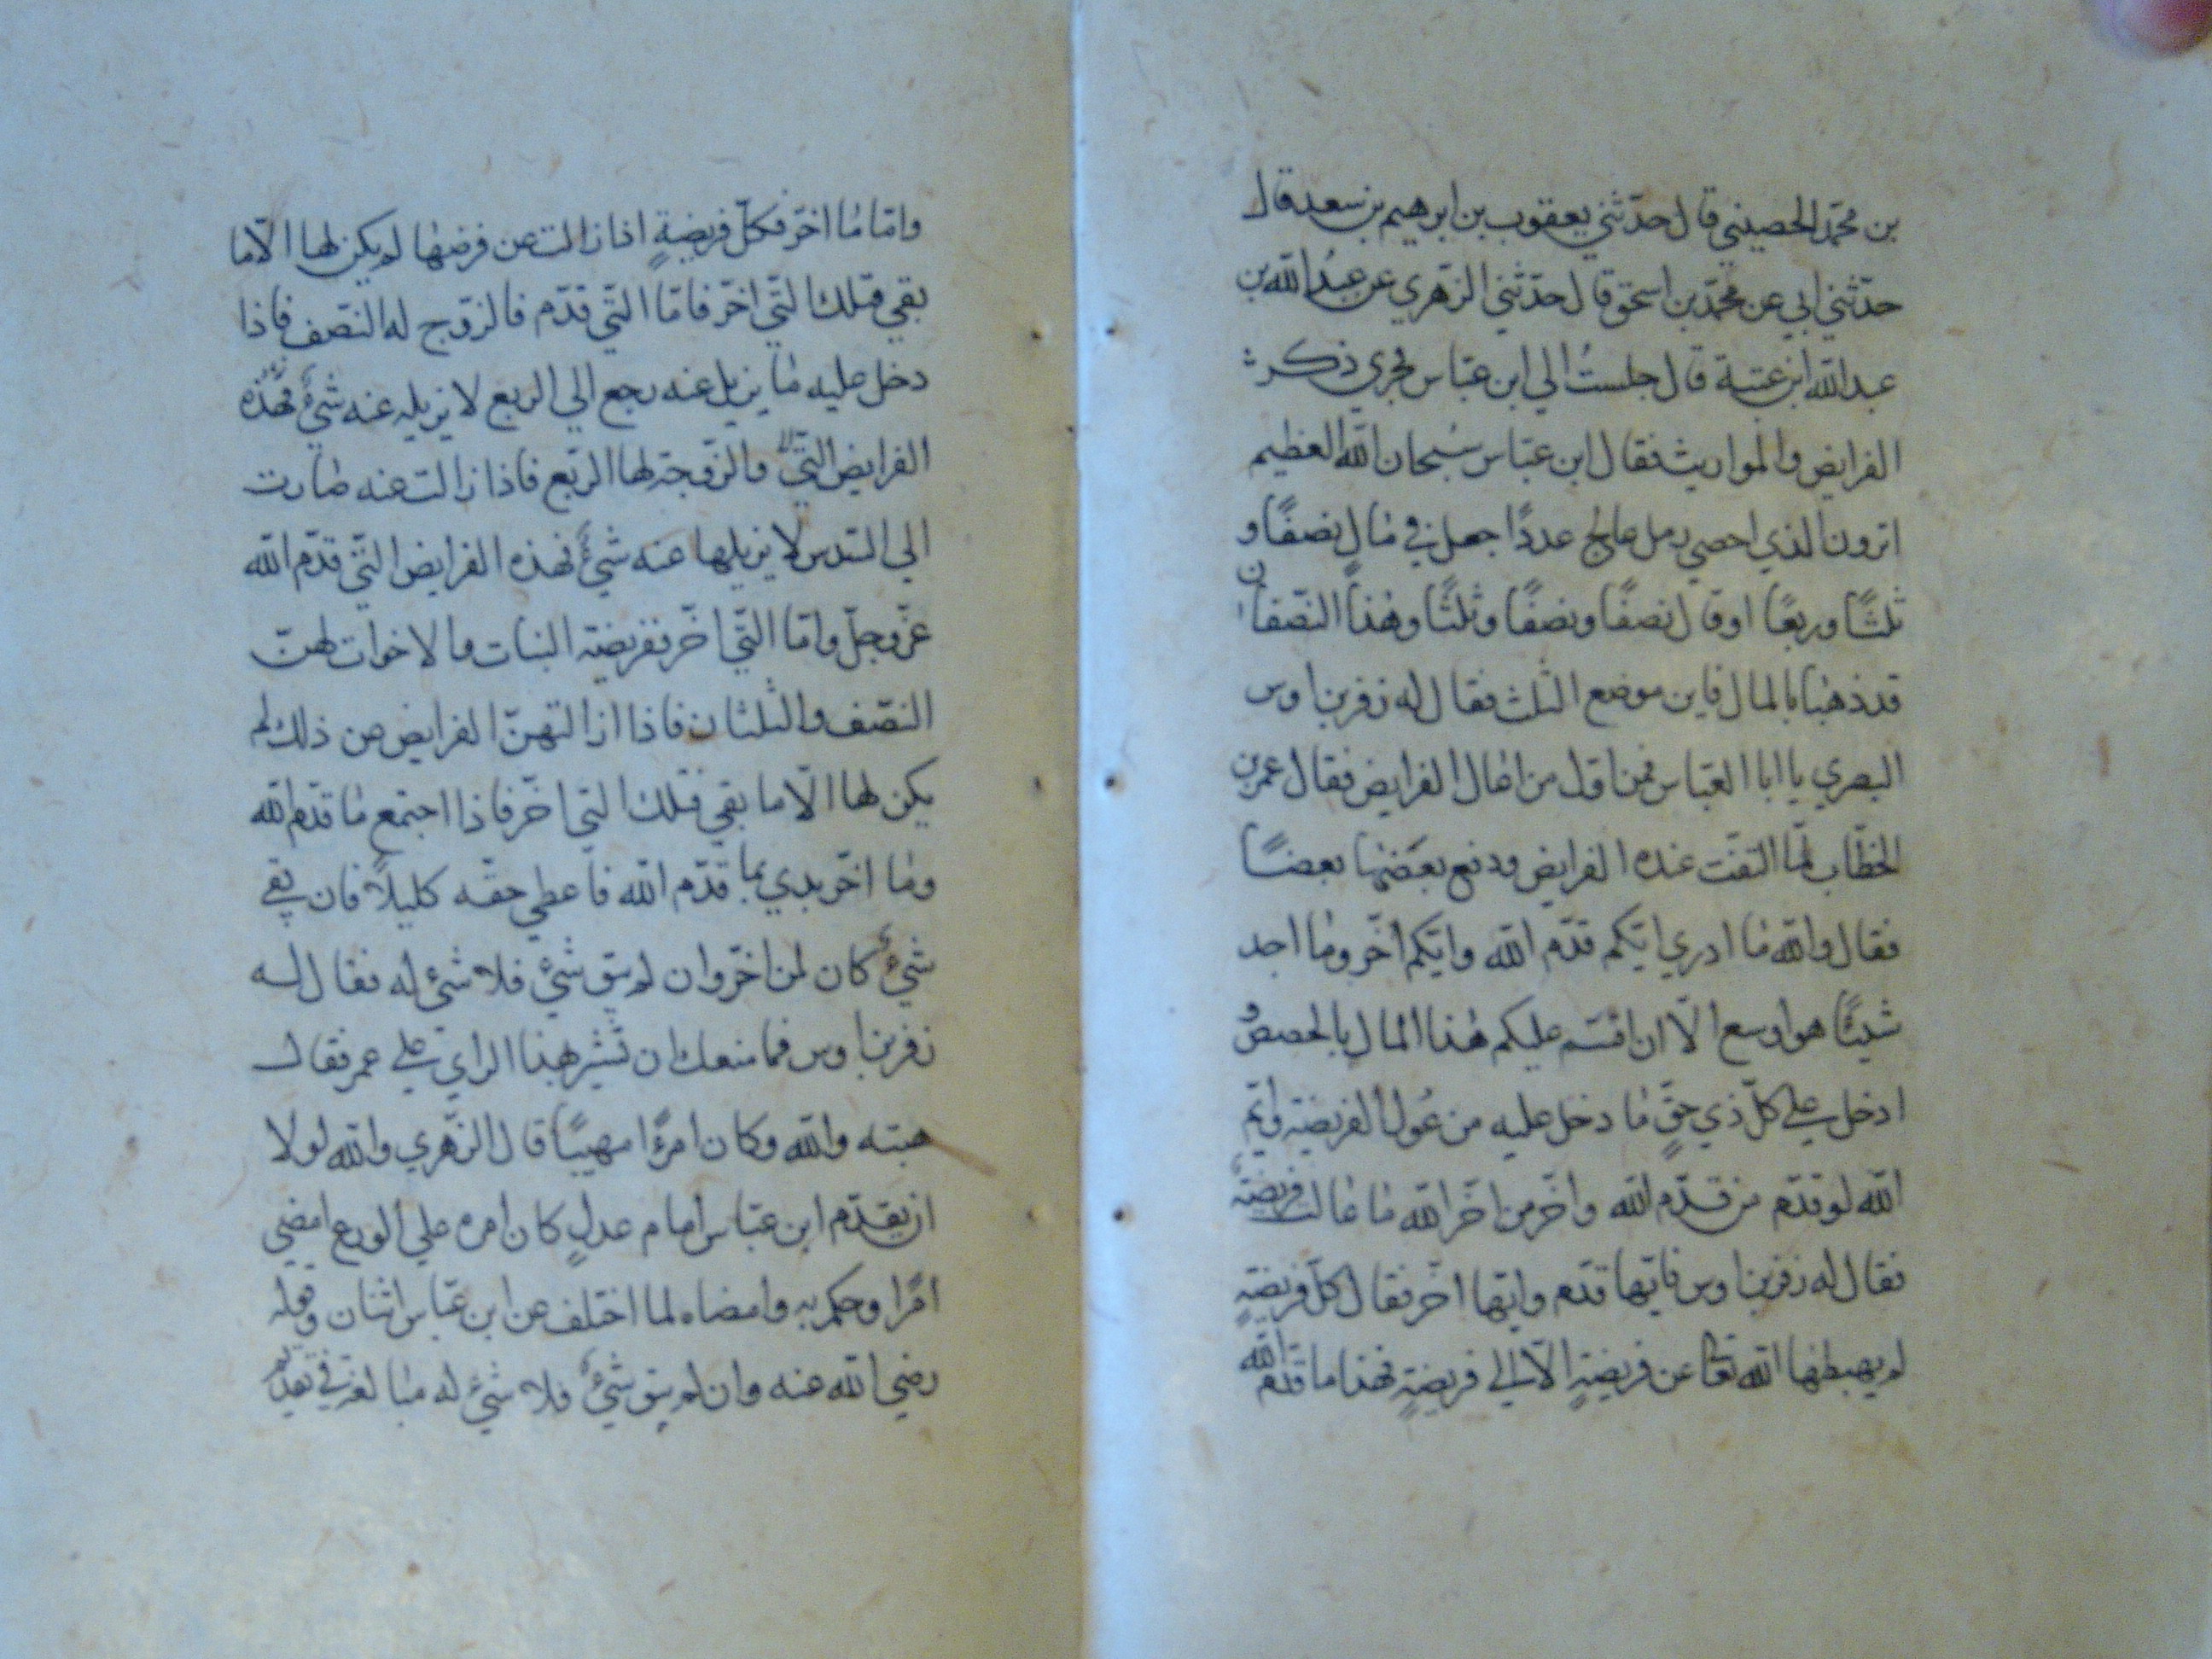 بن محمّد الحصيني قال حدّثني يعقوب بن ابرهيم بن سعد قال
حدّثني ابي عن محمّد بن اسحق قال حدّثني الزّهري عن عبد الله بن
عبد الله ابن عتبة قال جلستُ الي ابن عبّاس فجري ذكر
الفرايض والمواريث فقال ابن عبّاس سُبحان الله العظيم
اترون الّذي احصي رمل عالج عددًا جعل في مالٍ نصفًا و
ثلثًا وربعًا او قال نصفًا ونصفًا وثلثًا وهٰذا النّصفان
قد ذهبٰا بالمال فاين موضع الثّلث فقال له زفر بن اوس
البصري يا ابا العبّاس فمن اوّل من اعٰال الفرايض فقال عمر بن
الخطّاب لمّا التفّت عنده الفرايض ودفع بعضهٰا بعضًا
فقال والله مٰا ادري ايّكم قدّم الله وايّكم اخّر ومٰا اجد
شيئًا هو اوسع الّا ان اقسّم عليكم هٰذا المٰال بالحصص و
ادخل علي كلّ ذي حقٍّ مٰا دخل عليه من عُول الفريضة وايم
الله لو قدّم من قدّم الله واخّر من اخّر الله مٰا عٰالت فريضةٌ
فقال له زفر بن اوس فايّها قدّم وايّها اخّر فقال كلّ فريضةٍ
لم يهبطها الله تعٰا عن فريضةٍ الّا الي فريضةٍ فهٰذا ما قدّم الله
وامّا مٰا اخّر فكلّ فريضةٍ اذا زالت عن فرضهٰا لم يكن لهٰا الّا ما
بقي فتلك الّتي اخّر فامّا الّتي قدّم فالزّوج له النّصف فاذا
دخل عليه مٰا يزيله عنه رجع الي الربع لا يزيله عنه شيءٌ فهٰذه
الفرايض الّتي والزّوجة لها الرّبع فاذا زالت عنه صٰارت
الي الثّمن لا يزيلها عنه شيءٌ فهذه الفرايض الّتي قدّم الله
عزّ وجلّ وامّا الّتي اخّر ففريضة البنات والاخوات لهنّ
النصّف والثّلثان فاذا ازالتهنّ الفرايض عن ذلك لم
يكن لها الّا ما بقي فتلك الّتي اخّر فاذا اجتمع مٰا قدّم الله
ومٰا اخّر بدي بما قدّم الله فاعطي حقّه كليلًا فان بقي
شيءٌ كان لمن اخّر وان لم يبق شيءٌ فلا شيء له فقال له
زفر بن اوس فما منعك ان تشير بهذا الراي علي عمر فقال
هبته والله وكان امرءًا مهيبًا قال الزّهري والله لولا
ان يقدّم ابن عبّاس امام عدلٍ كان امره علي الورع امضي
امرًا وحكم به وامضاه لما اختلف عن ابن عبّاس اثنان وقوله
رضي الله عنه وان لم يبق شيءٌ فلا شيءَ له مبالغة في تقديم